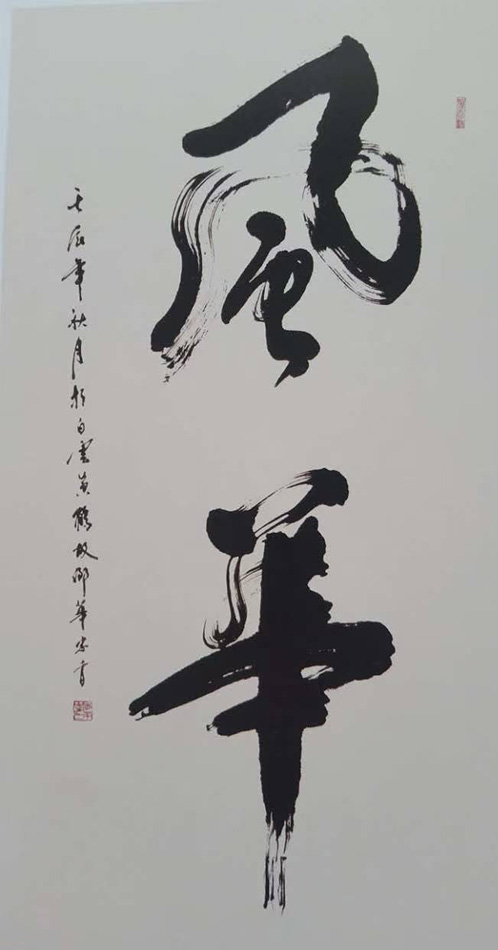 風華
壬辰年秋月於白雲黃鶴故鄉華